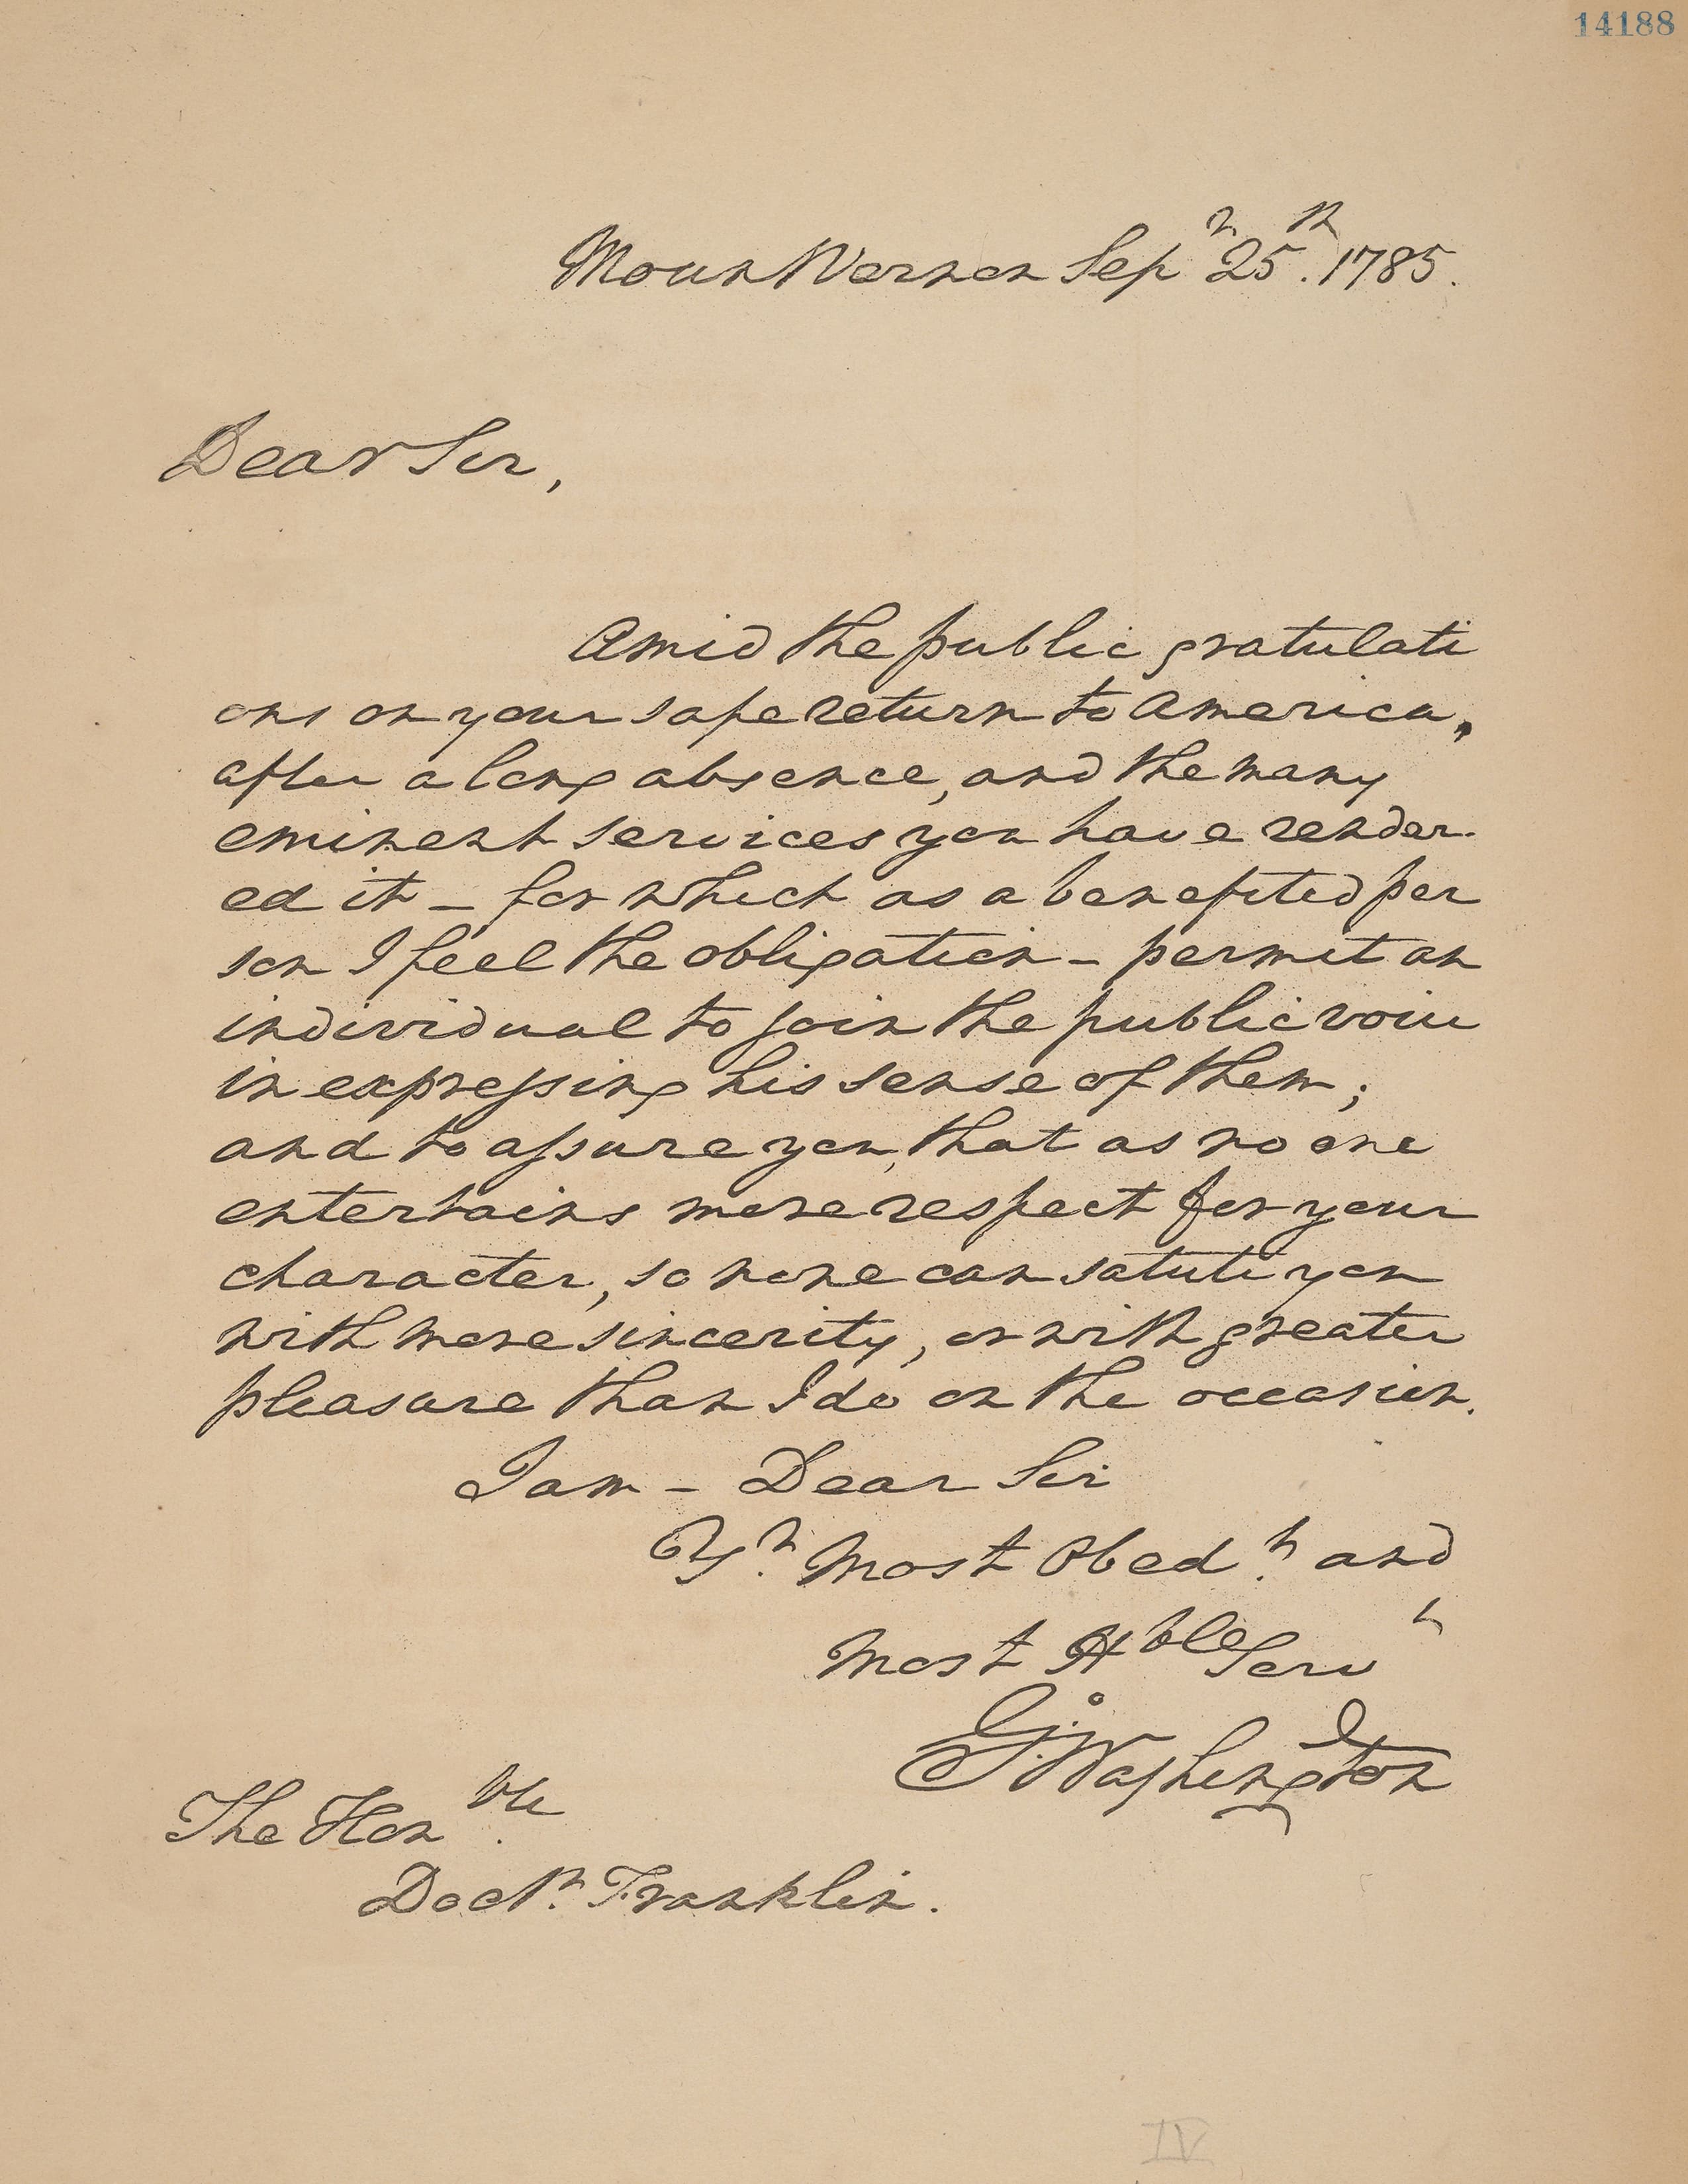 14188
Mount Vernon Sepr 25th. 1785.
Dear Sir,
Amid the public gratulati
ons on your safe return to America,
after a long absence, and the many
eminent services you have render-
ed it – for which as a benefited per
son I feel the obligation – permit an
individual to join the public voice
in expressing his sense of them;
and to assure you, that as no one
entertains more respect for your
character, so none can salute you
with more sincerity, or with greater
pleasure than I do on the occasion.
I am – Dear Sir
Yr. Most Obedt. and
Most Hble Servt
Go. Washington
The Honble.
Doctr. Franklin.
IV